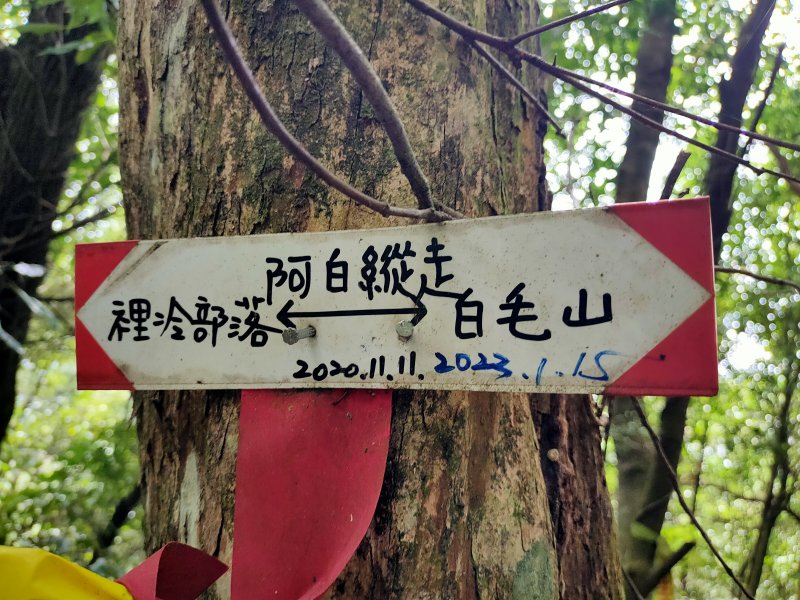 阿白縱走
裡冷部落 ↔ 白毛山
2020.11.11. 2023.1.15